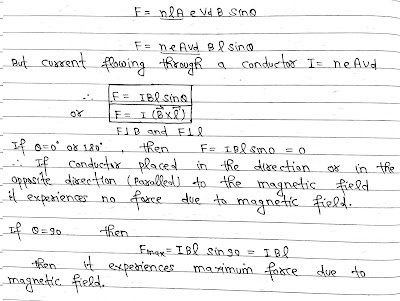 F = nlA e Vd B sinθ
F = neAVd Bl sinθ
But current flowing through a conductor I = neAVd
∴ F = IBl sinθ
or F = I (B⃗ × l⃗)
F⊥B and F⊥l
If θ=0° or 180°, then F = IBl sin0 = 0
∴ If conductor placed in the direction or in the
opposite direction (Parallel) to the magnetic field
it experiences no force due to magnetic field.
If θ=90 then
Fmax = IBl sin90 = IBl
then it experiences maximum force due to
magnetic field.